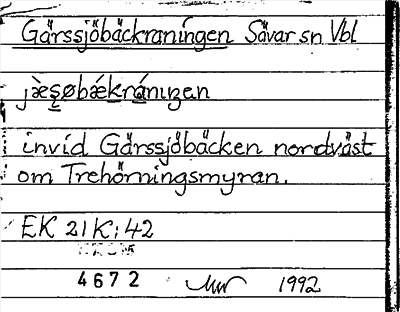 Gärssjöbäckraningen Sävar sn Vbl
jæ̀s̨øbǽkránıŋen
invid Gärssjöbäcken nordväst
om Trehörningsmyran.
EK 21K:42
4672 1992